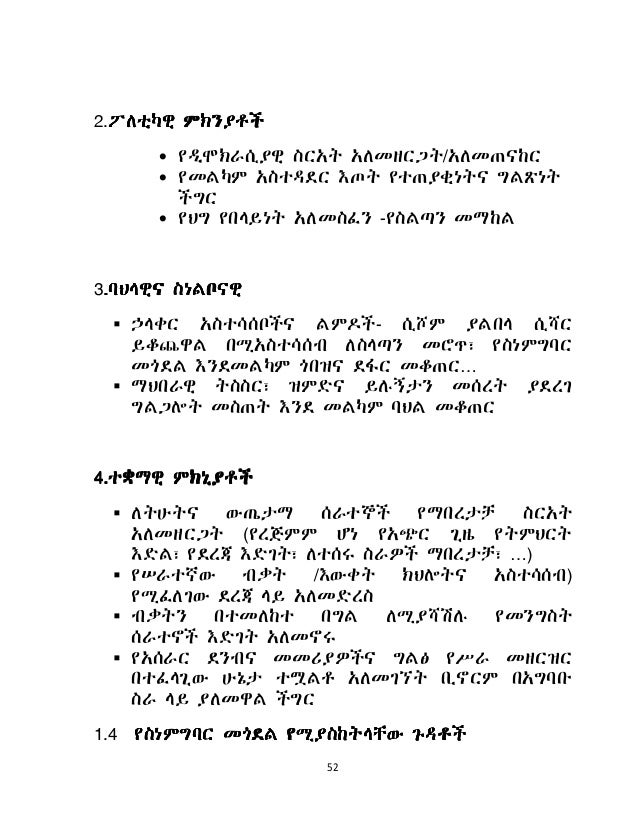 2.ፖለቲካዊ ምክንያቶች
• የዲሞክራሲያዊ ስርአት አለመዘርጋት/አለመጠናከር
• የመልካም አስተዳደር እጦት የተጠያቂነትና ግልጽነት
ችግር
• የህግ የበላይነት አለመስፈን -የስልጣን መማከል
3.ባህላዊና ስነልቦናዊ
▪ ኃላቀር አስተሳሰቦችና ልምዶች- ሲሾም ያልበላ ሲሻር
ይቆጨዋል በሚአስተሳሰብ ለስላጣን መሮጥ፣ የስነምግባር
መጎደል እንደመልካም ጎበዝና ደፋር መቆጠር...
▪ ማህበራዊ ትስስር፣ ዝምድና ይሉኝታን መሰረት ያደረገ
ግልጋሎት መስጠት እንደ መልካም ባህል መቆጠር
4.ተቋማዊ ምክኒያቶች
▪ ለትሁትና ውጤታማ ሰራተኞች የማበረታቻ ስርአት
አለመዘርጋት (የረጅምም ሆነ የአጭር ጊዜ የትምህርት
እድል፣ የደረጃ እድገት፣ ለተሰሩ ስራዎች ማበረታቻ፣ ...)
▪ የሠራተኛው ብቃት /እውቀት ክህሎትና አስተሳሰብ)
የሚፈለገው ደረጃ ላይ አለመድረስ
▪ ብቃትን በተመለከተ በግል ለሚያሻሽሉ የመንግስት
ሰራተኖች እድገት አለመኖሩ
▪ የአሰራር ደንብና መመሪያዎችና ግልፅ የሥራ መዘርዝር
በተፈላጊው ሁኔታ ተሟልቶ አለመገኘት ቢኖርም በአግባቡ
ስራ ላይ ያለመዋል ችግር
1.4 የስነምግባር መጎደል የሚያስከትላቸው ጉዳቶች
52